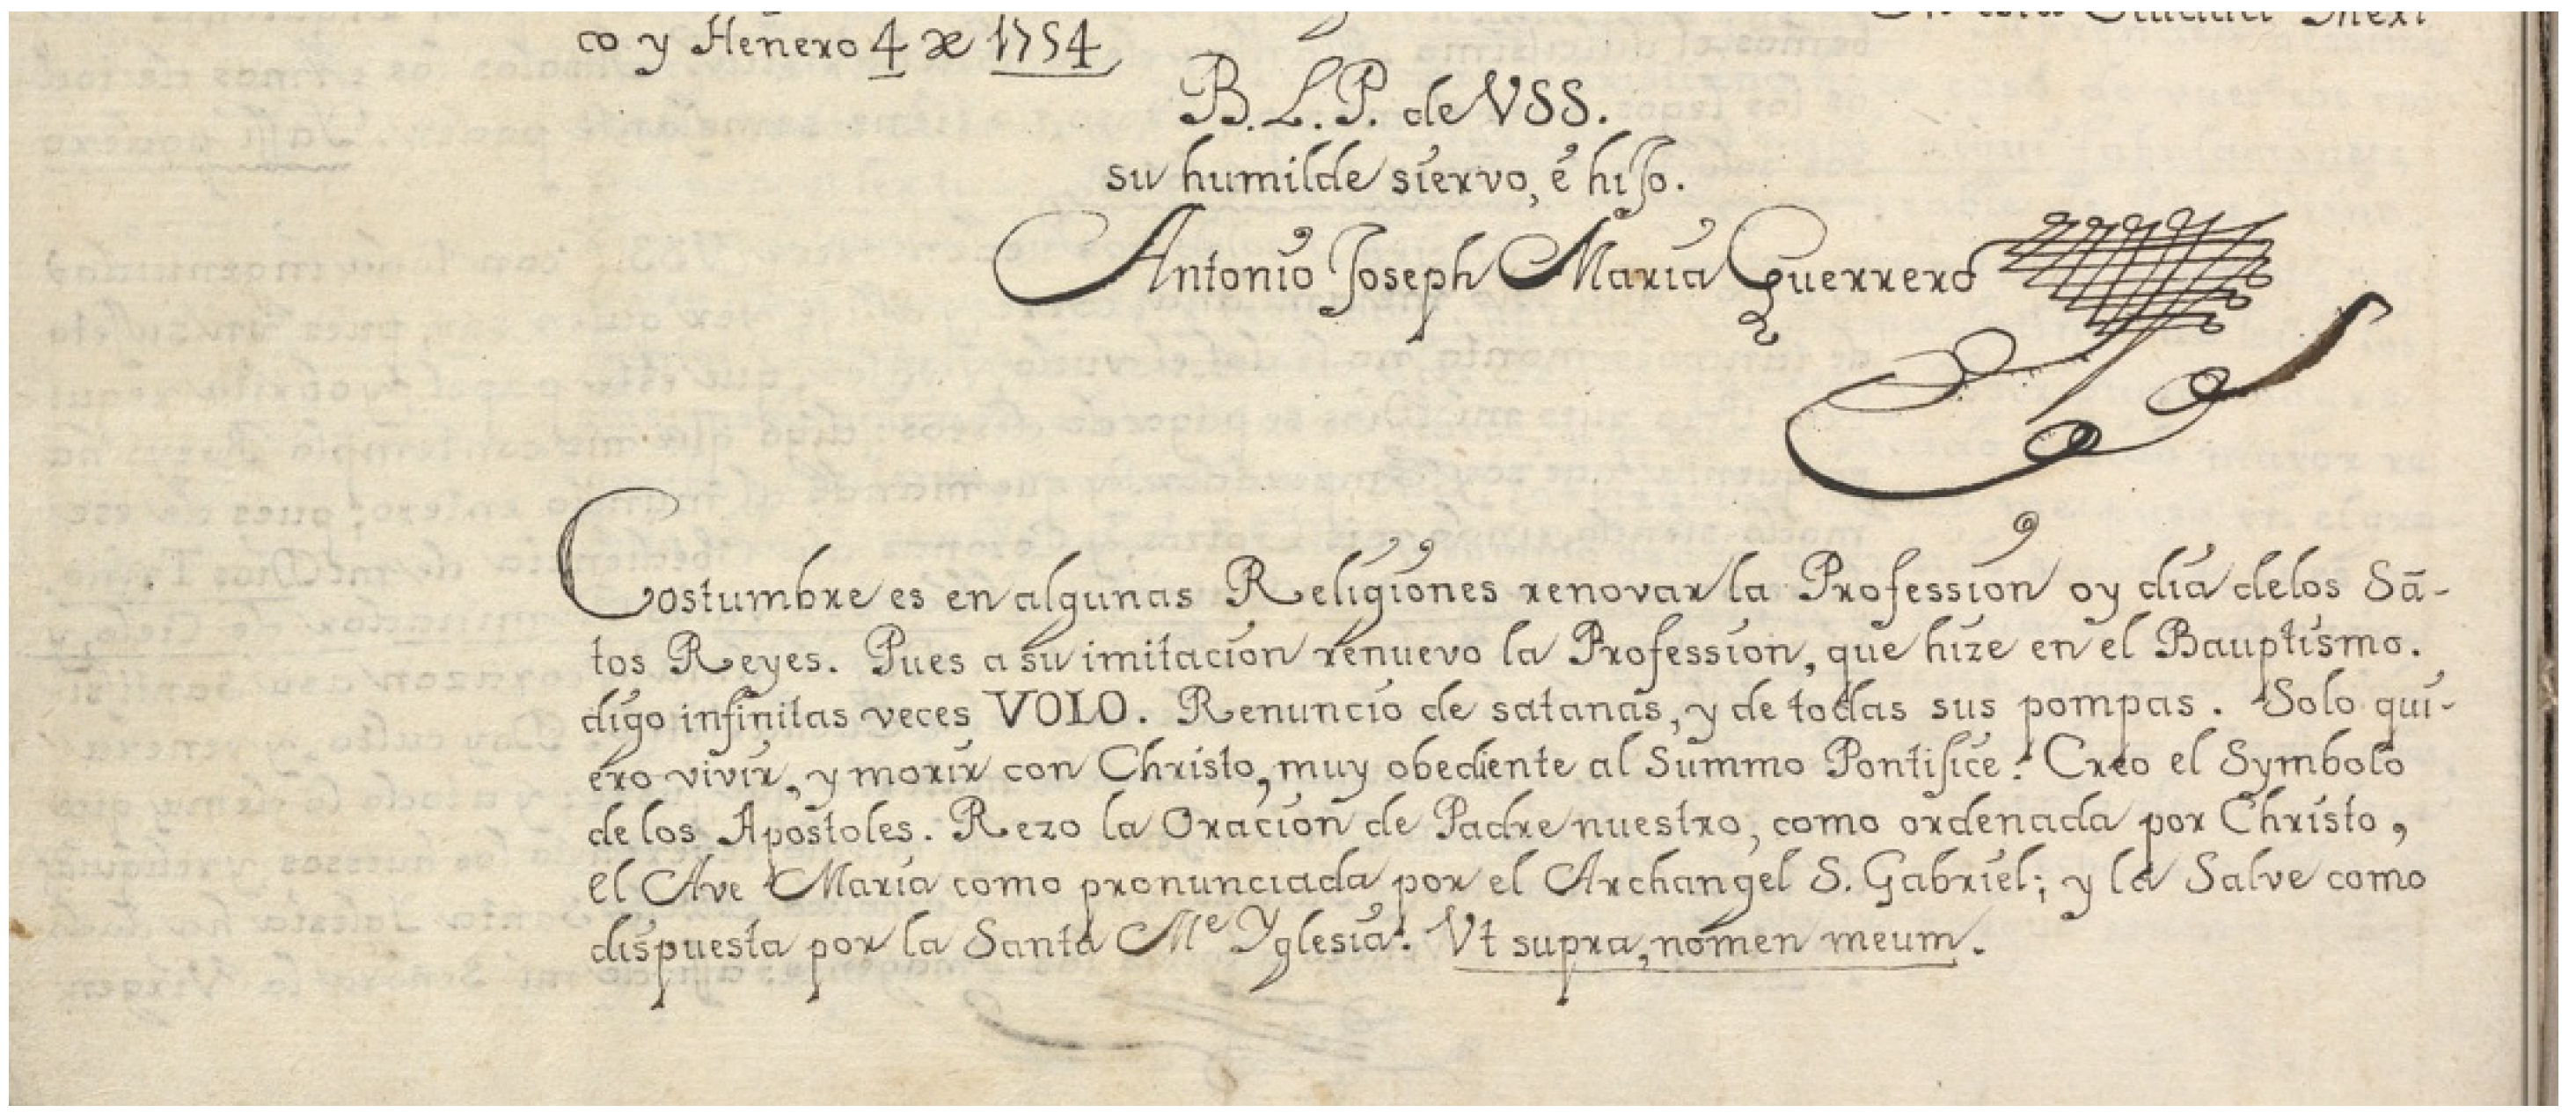 En esta Ciudad Mexi
co y Henero 4 de 1754
B. L. P. de VSS.
su humilde siervo, é hijo.
Antonio Joseph Maria Guerrero
Costumbre es en algunas Religiones renovar la Profession oy dia delos Sã-
tos Reyes. Pues a su imitacion renuevo la Profession, que hize en el Bauptismo.
digo infinitas veces VOLO. Renuncio de satanas, y de todas sus pompas. Solo qui-
ero vivir, y morir con Christo, muy obediente al Summo Pontifice. Creo el Symbolo
de los Apostoles. Rezo la Oracion de Padre nuestro, como ordenada por Christo,
el Ave Maria como pronunciada por el Archangel S. Gabriel; y la Salve como
dispuesta por la Santa Me Yglesia. Vt supra, nomen meum.